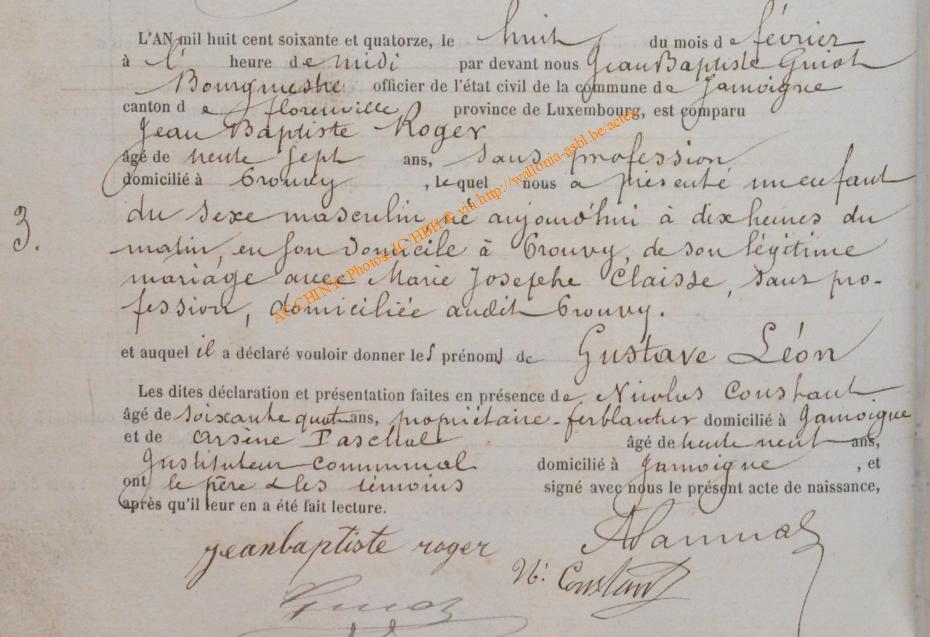 L'AN mil huit cent soixante et quatorze, le huit du mois de février
à l' heure de midi par devant nous Jean Baptiste Guiot
Bourgmestre officier de l'état civil de la commune de Jamoigne
canton de florenville province de Luxembourg, est comparu
Jean Baptiste Roger
âgé de trente sept ans, sans profession
domicilié à Prouvy, lequel nous a présenté un enfant
3.
du sexe masculin né aujourd'hui à dix heures du
matin, en son domicile à Prouvy, de son légitime
mariage avec Marie Josephe Claisse, sans pro-
fession, domiciliée audit Prouvy.
et auquel il a déclaré vouloir donner les prénoms de Gustave Léon
Les dites déclaration et présentation faites en présence de Nicolas Constant
âgé de soixante quatre ans, propriétaire-ferblantier domicilié à Jamoigne
et de Arsène Paschal âgé de trente neuf ans,
Instituteur communal domicilié à Jamoigne, et
ont le père & les témoins signé avec nous le présent acte de naissance,
après qu'il leur en a été fait lecture.
jeanbaptiste roger
N: Constant
Guiot
ACCHINY: Photos JC HBH © via http://wallonia-asbl.be/actes